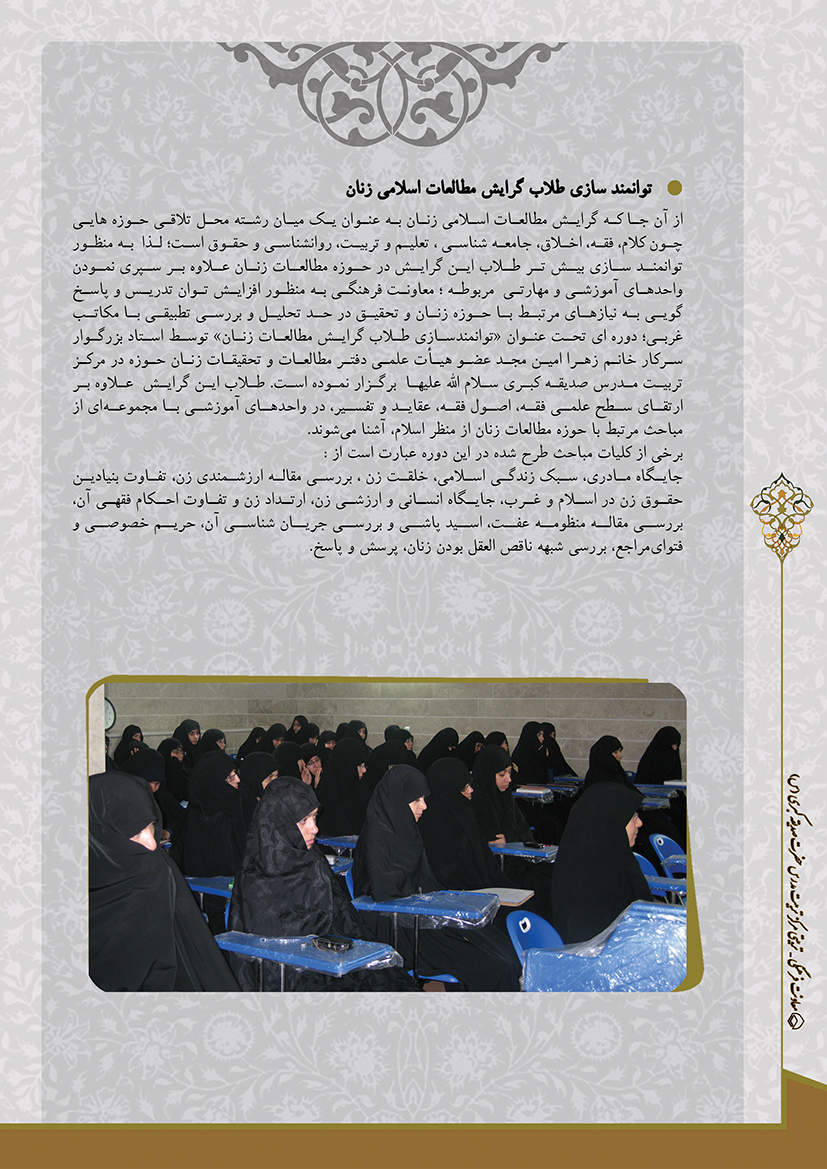 توانمند سازی طلاب گرایش مطالعات اسلامی زنان
از آن جا که گرایش مطالعات اسلامی زنان به عنوان یک میان رشته محل تلاقی حوزه هایی
چون کلام، فقه، اخلاق، جامعه شناسی ، تعلیم و تربیت، روانشناسی و حقوق است؛ لذا به منظور
توانمند سازی بیش تر طلاب این گرایش در حوزه مطالعات زنان علاوه بر سپری نمودن
واحدهای آموزشی و مهارتی مربوطه ؛ معاونت فرهنگی به منظور افزایش توان تدریس و پاسخ
گویی به نیازهای مرتبط با حوزه زنان و تحقیق در حد تحلیل و بررسی تطبیقی با مکاتب
غربی؛ دوره ای تحت عنوان «توانمندسازی طلاب گرایش مطالعات زنان» توسط استاد بزرگوار
سرکار خانم زهرا امین مجد عضو هیأت علمی دفتر مطالعات و تحقیقات زنان حوزه در مرکز
تربیت مدرس صدیقه کبری سلام الله علیها برگزار نموده است. طلاب این گرایش علاوه بر
ارتقای سطح علمی فقه، اصول فقه، عقاید و تفسیر، در واحدهای آموزشی با مجموعه‌ای از
مباحث مرتبط با حوزه مطالعات زنان از منظر اسلام، آشنا می‌شوند.
برخی از کلیات مباحث طرح شده در این دوره عبارت است از :
جایگاه مادری، سبک زندگی اسلامی، خلقت زن ، بررسی مقاله ارزشمندی زن، تفاوت بنیادین
حقوق زن در اسلام و غرب، جایگاه انسانی و ارزشی زن، ارتداد زن و تفاوت احکام فقهی آن،
بررسی مقاله منظومه عفت، اسید پاشی و بررسی جریان شناسی آن، حریم خصوصی و
فتوای‌مراجع، بررسی شبهه ناقص العقل بودن زنان، پرسش و پاسخ.
معاونت فرهنگی - تربیتی مرکز تربیت مدرس حضرت صدیقه کبری (س)